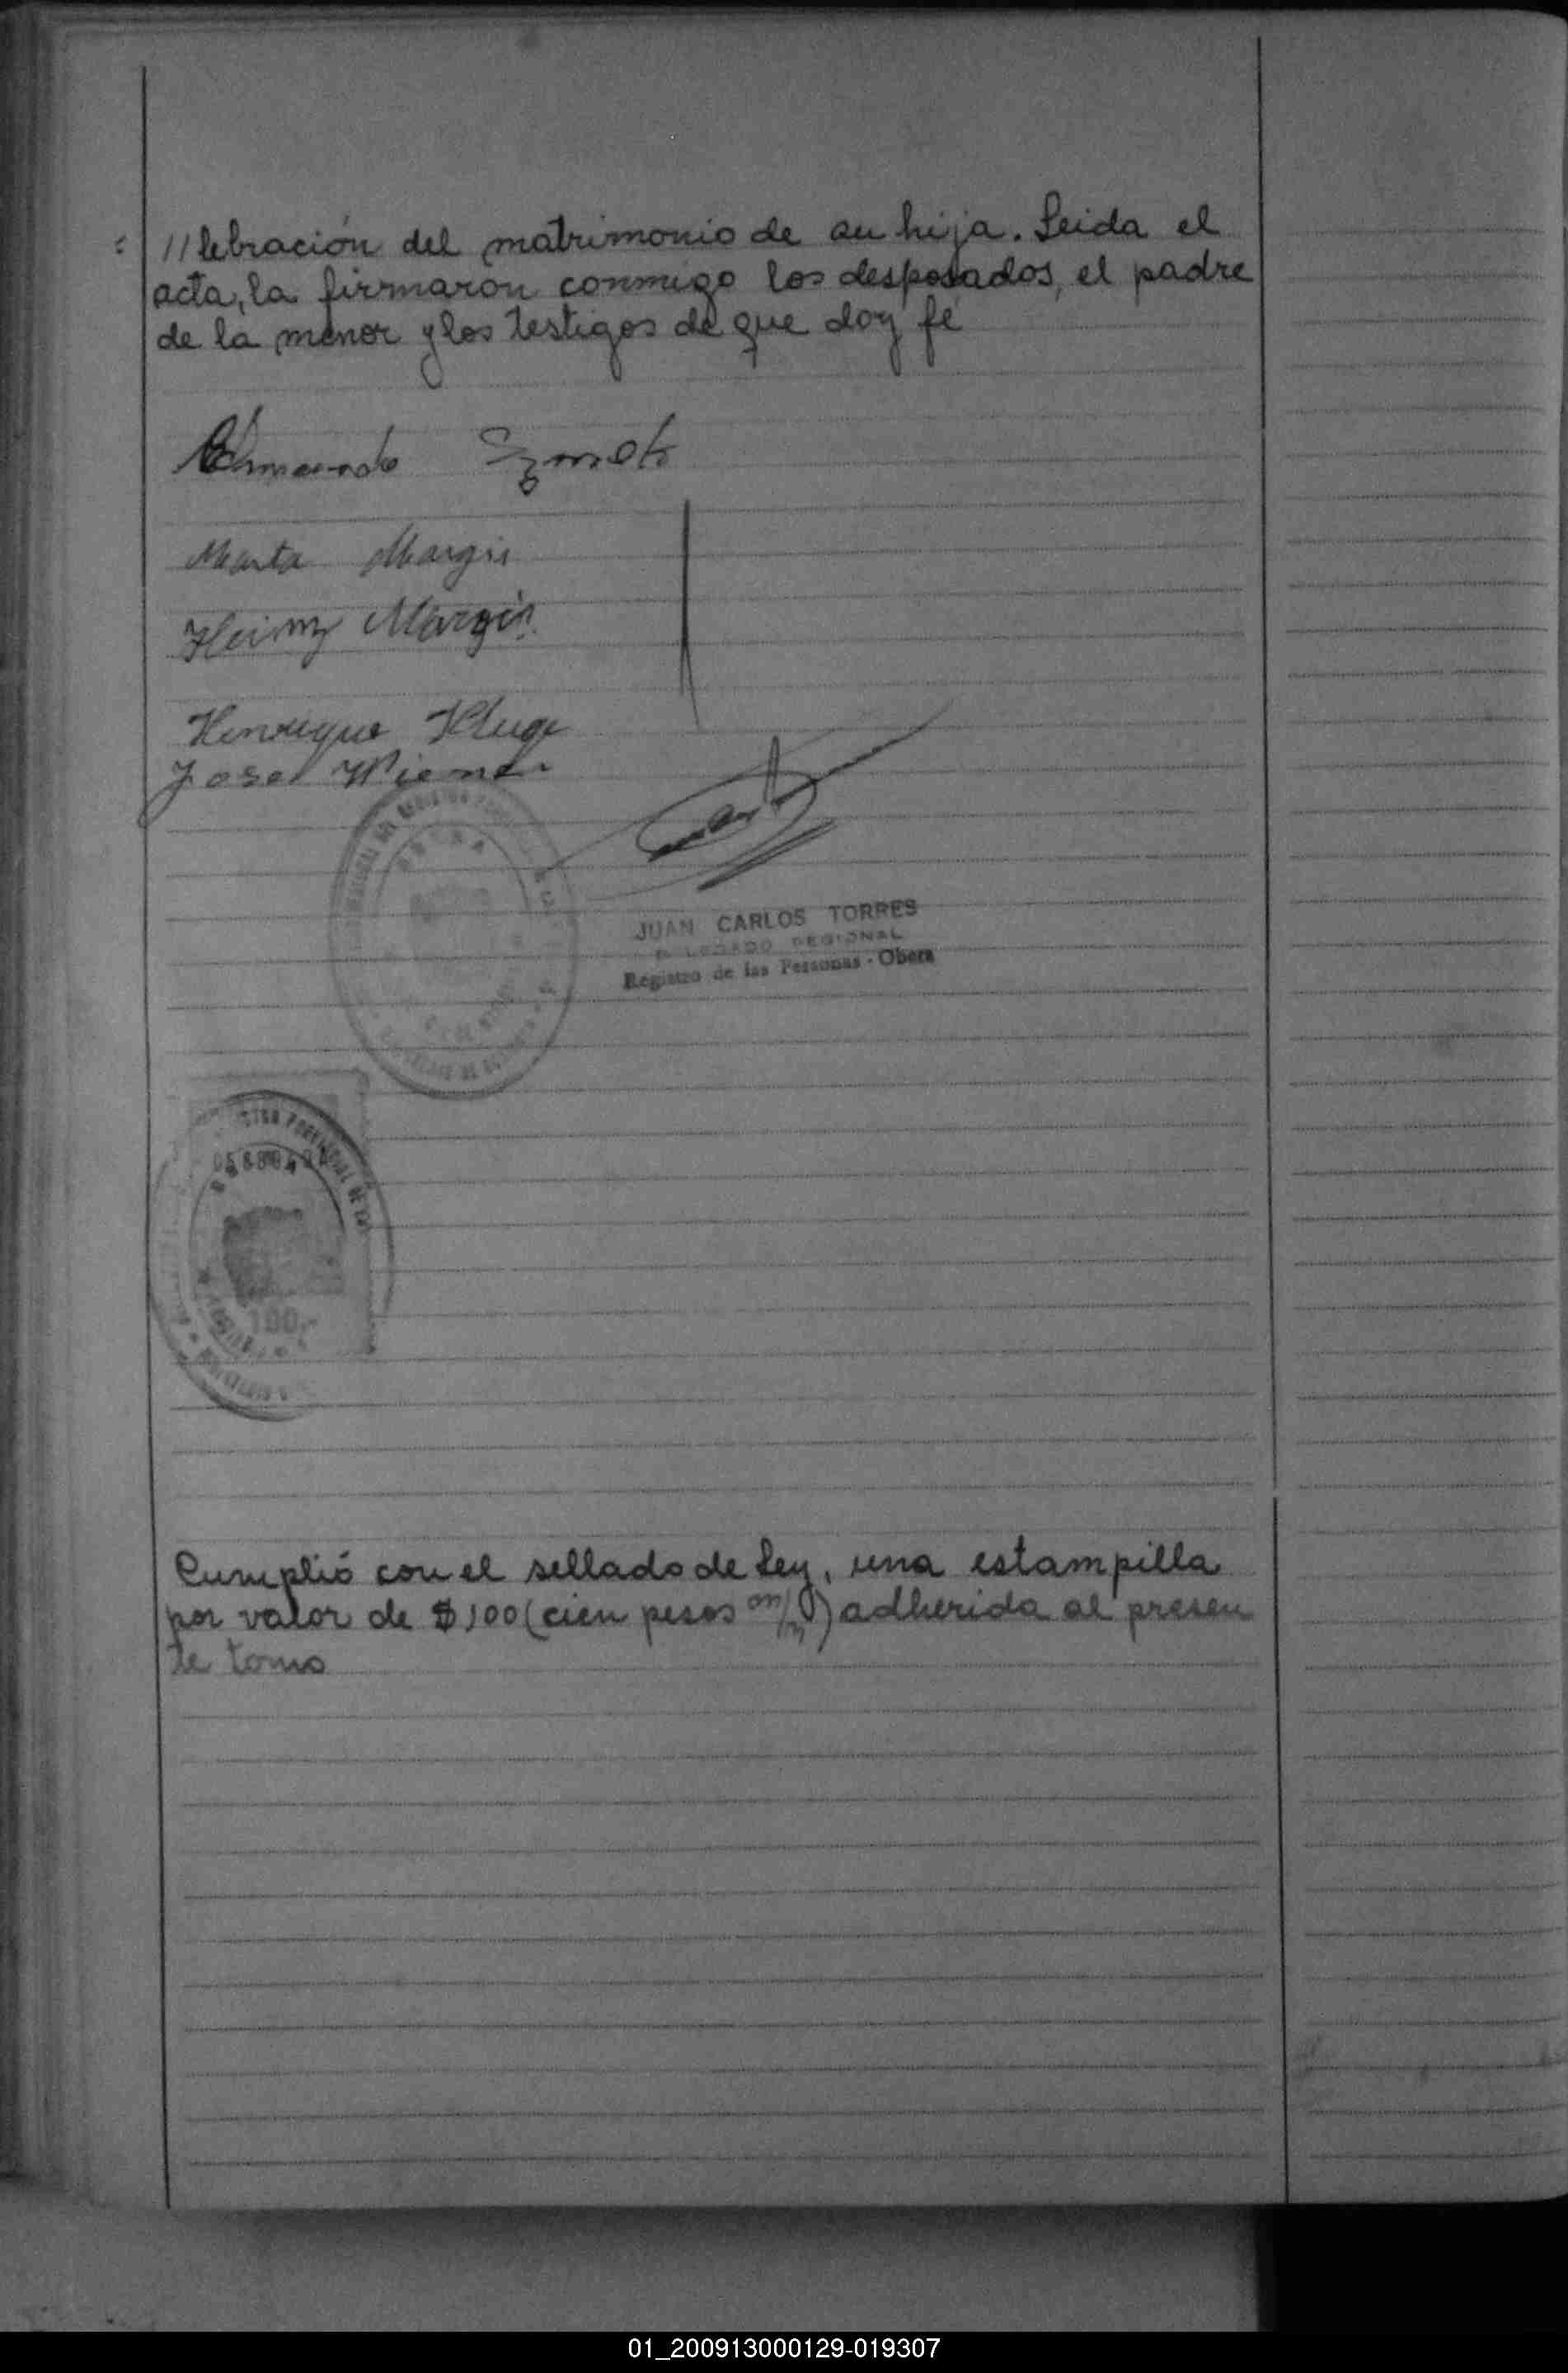 //lebración del matrimonio de su hija. Leida el
acta, la firmaron conmigo los desposados, el padre
de la menor y los testigos de que doy fé
Marta Margis
Heinz Margis
Henrique Kluge
Jose Wiemer
OBERA
JUAN CARLOS TORRES
DELEGADO REGIONAL
Registro de las Personas - Obera
100.-
Cumplió con el sellado de Ley, una estampilla
por valor de $100 (cien pesos m/n) adherida al presen
te tomo
01_200913000129-019307